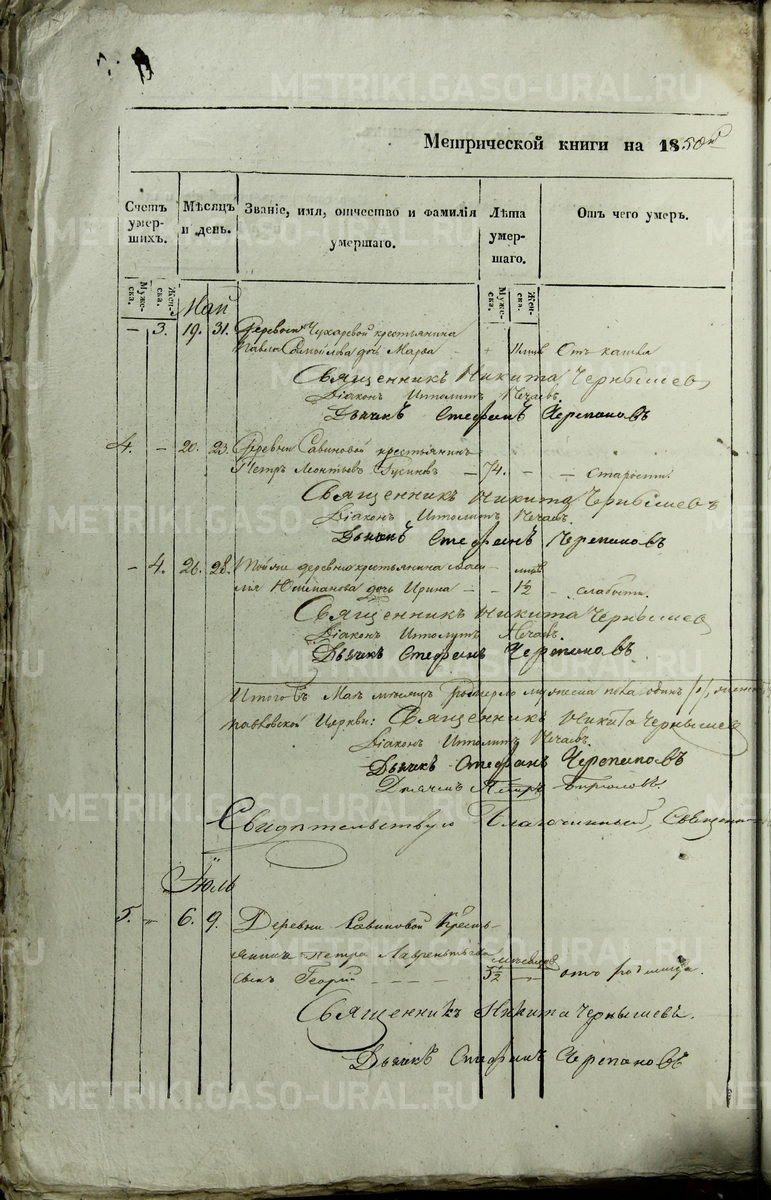 METRIKI.GASO-URAL.RU
Метрической книги на 1850й
Счетъ умер-шихъ.
Мѣсяцъ и день.
Званіе, имя, отчество и фамилія умершаго.
Лѣта умер-шаго.
Отъ чего умеръ.
Муже-ска. Жен-ска. Муже-ска. Жен-ска.
Май
— 3. 19. 31. Деревни Чухаревой крестьянина
Павла Самойлова дочь Марѳа Отъ кашля
Священникъ Никита Чернышев
Діаконъ Ипполитъ Нечаевъ.
Дьячекъ Стефанъ Черепановъ
4. — 20. 23. Деревни Савиновой крестьянинъ
Петръ Леонтьевъ Гусинъ — 74. — — старости.
Священникъ Никита Чернышев
Діаконъ Ипполитъ Нечаевъ.
Дьячекъ Стефанъ Черепановъ
— 4. 26. 28. Той же деревни крестьянина
дочь Ирина — — 1½ — слабости.
Священникъ Никита Чернышев
Діаконъ Ипполитъ Нечаевъ.
Дьячекъ Стефанъ Черепановъ
Итого въ Маѣ мѣсяцѣ померло мужеска пола одинъ /1/,
Церкви: Священникъ Никита Чернышев
Діаконъ Ипполитъ Нечаевъ.
Дьячекъ Стефанъ Черепановъ
Петръ
Свидѣтельствую Благочинный, Священни
Іюль
5. „ 6. 9. Деревни Савиновой Кресть-
янина Петра Лаврентьева
сынъ Георгій — — — — 5½ отъ родимца.
Священникъ Никита Чернышевъ.
Дьячекъ Стефанъ Черепановъ